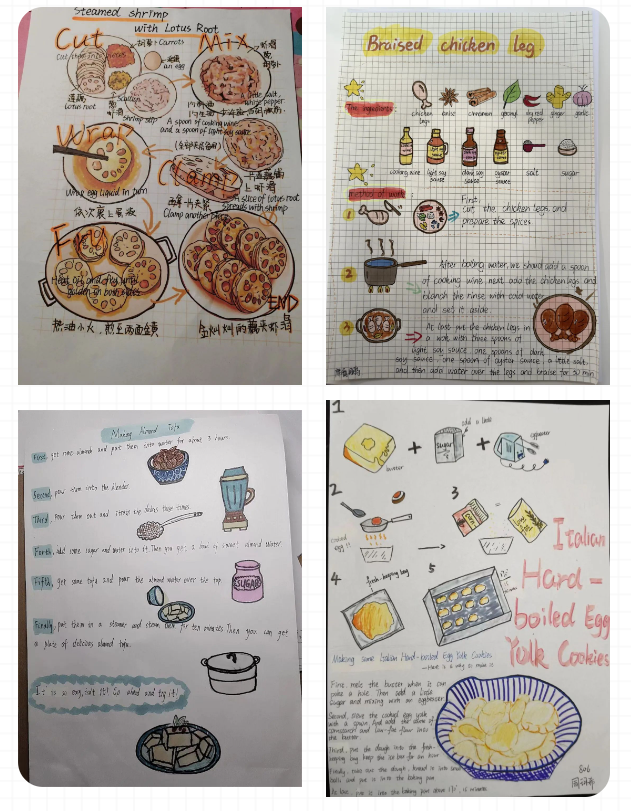 Steamed shrimp
with Lotus Root
Cut
Mix
胡萝卜 Carrots
Cut them into pieces
an egg
莲藕
lotus root
Scallion
shrimp slip
a little salt,
white pepper
A spoon of cooking wine
and a spoon of light soy sauce
Wrap
Clamp
Wrap egg liquid in turn
依次裹上蛋液
再夹一片
Clamp another piece
A slice of lotus root
spreads with shrimp
Fry
Heat oil and fry until
golden on both sides
热油小火,煎至两面金黄
END
金灿灿的藕夹虾
Braised chicken leg.
The ingredients:
chicken
legs
anise
cinnamon
geranyl
dry red
pepper
ginger
garlic
cooking wine
light soy
sauce
dark soy
sauce
oyster
sauce
salt
sugar
method of work:
1
First
cut the chicken legs and
prepare the spices
2
After boiling water, we should add a spoon
of cooking wine, next add the chicken legs and
blanch the rinse with cold water
and set it aside.
3
At last put the chicken legs in
a wok with three spoons of
light soy sauce, one spoons of dark
soy sauce, one spoons of oyster sauce, a little salt
and then add water over the legs and braise for 30 min
Making Almond Tofu
First, get some almonds and put them into water for about 3 hours.
Second, pour them into the blender.
Third, pour them out and
Forth, add some sugar and water into it. Then you get a bowl of sweet almond water
SUGAR
Fifth, get some tofu and pour the almond water over the top.
Finally, put them in a steamer and steam them for ten minutes. Then you can get
a plate of delicious almond tofu.
It is so easy, isn't it! Go ahead and try it!
1
butter
add a little
sugar
eggbeater
2
cooked
egg
3
corn
4
fresh-keeping bag
5
Italian
Hard-
boiled Egg
Yolk Cookies
Making some Italian Hard-boiled Egg Yolk Cookies
—Here is a way to make it
First, melt the butter when it can
poke a hole. Then add a little
sugar and mixing with an eggbeater.
Second, sieve the cooked egg yolk
with a spoon. And add the
cornstarch and low-flat flour into
the butter.
Third, put the dough into the fresh-
keeping bag keep the ice for an hour
Finally, take out the dough, knead in into small
balls and put it into the baking pan
806